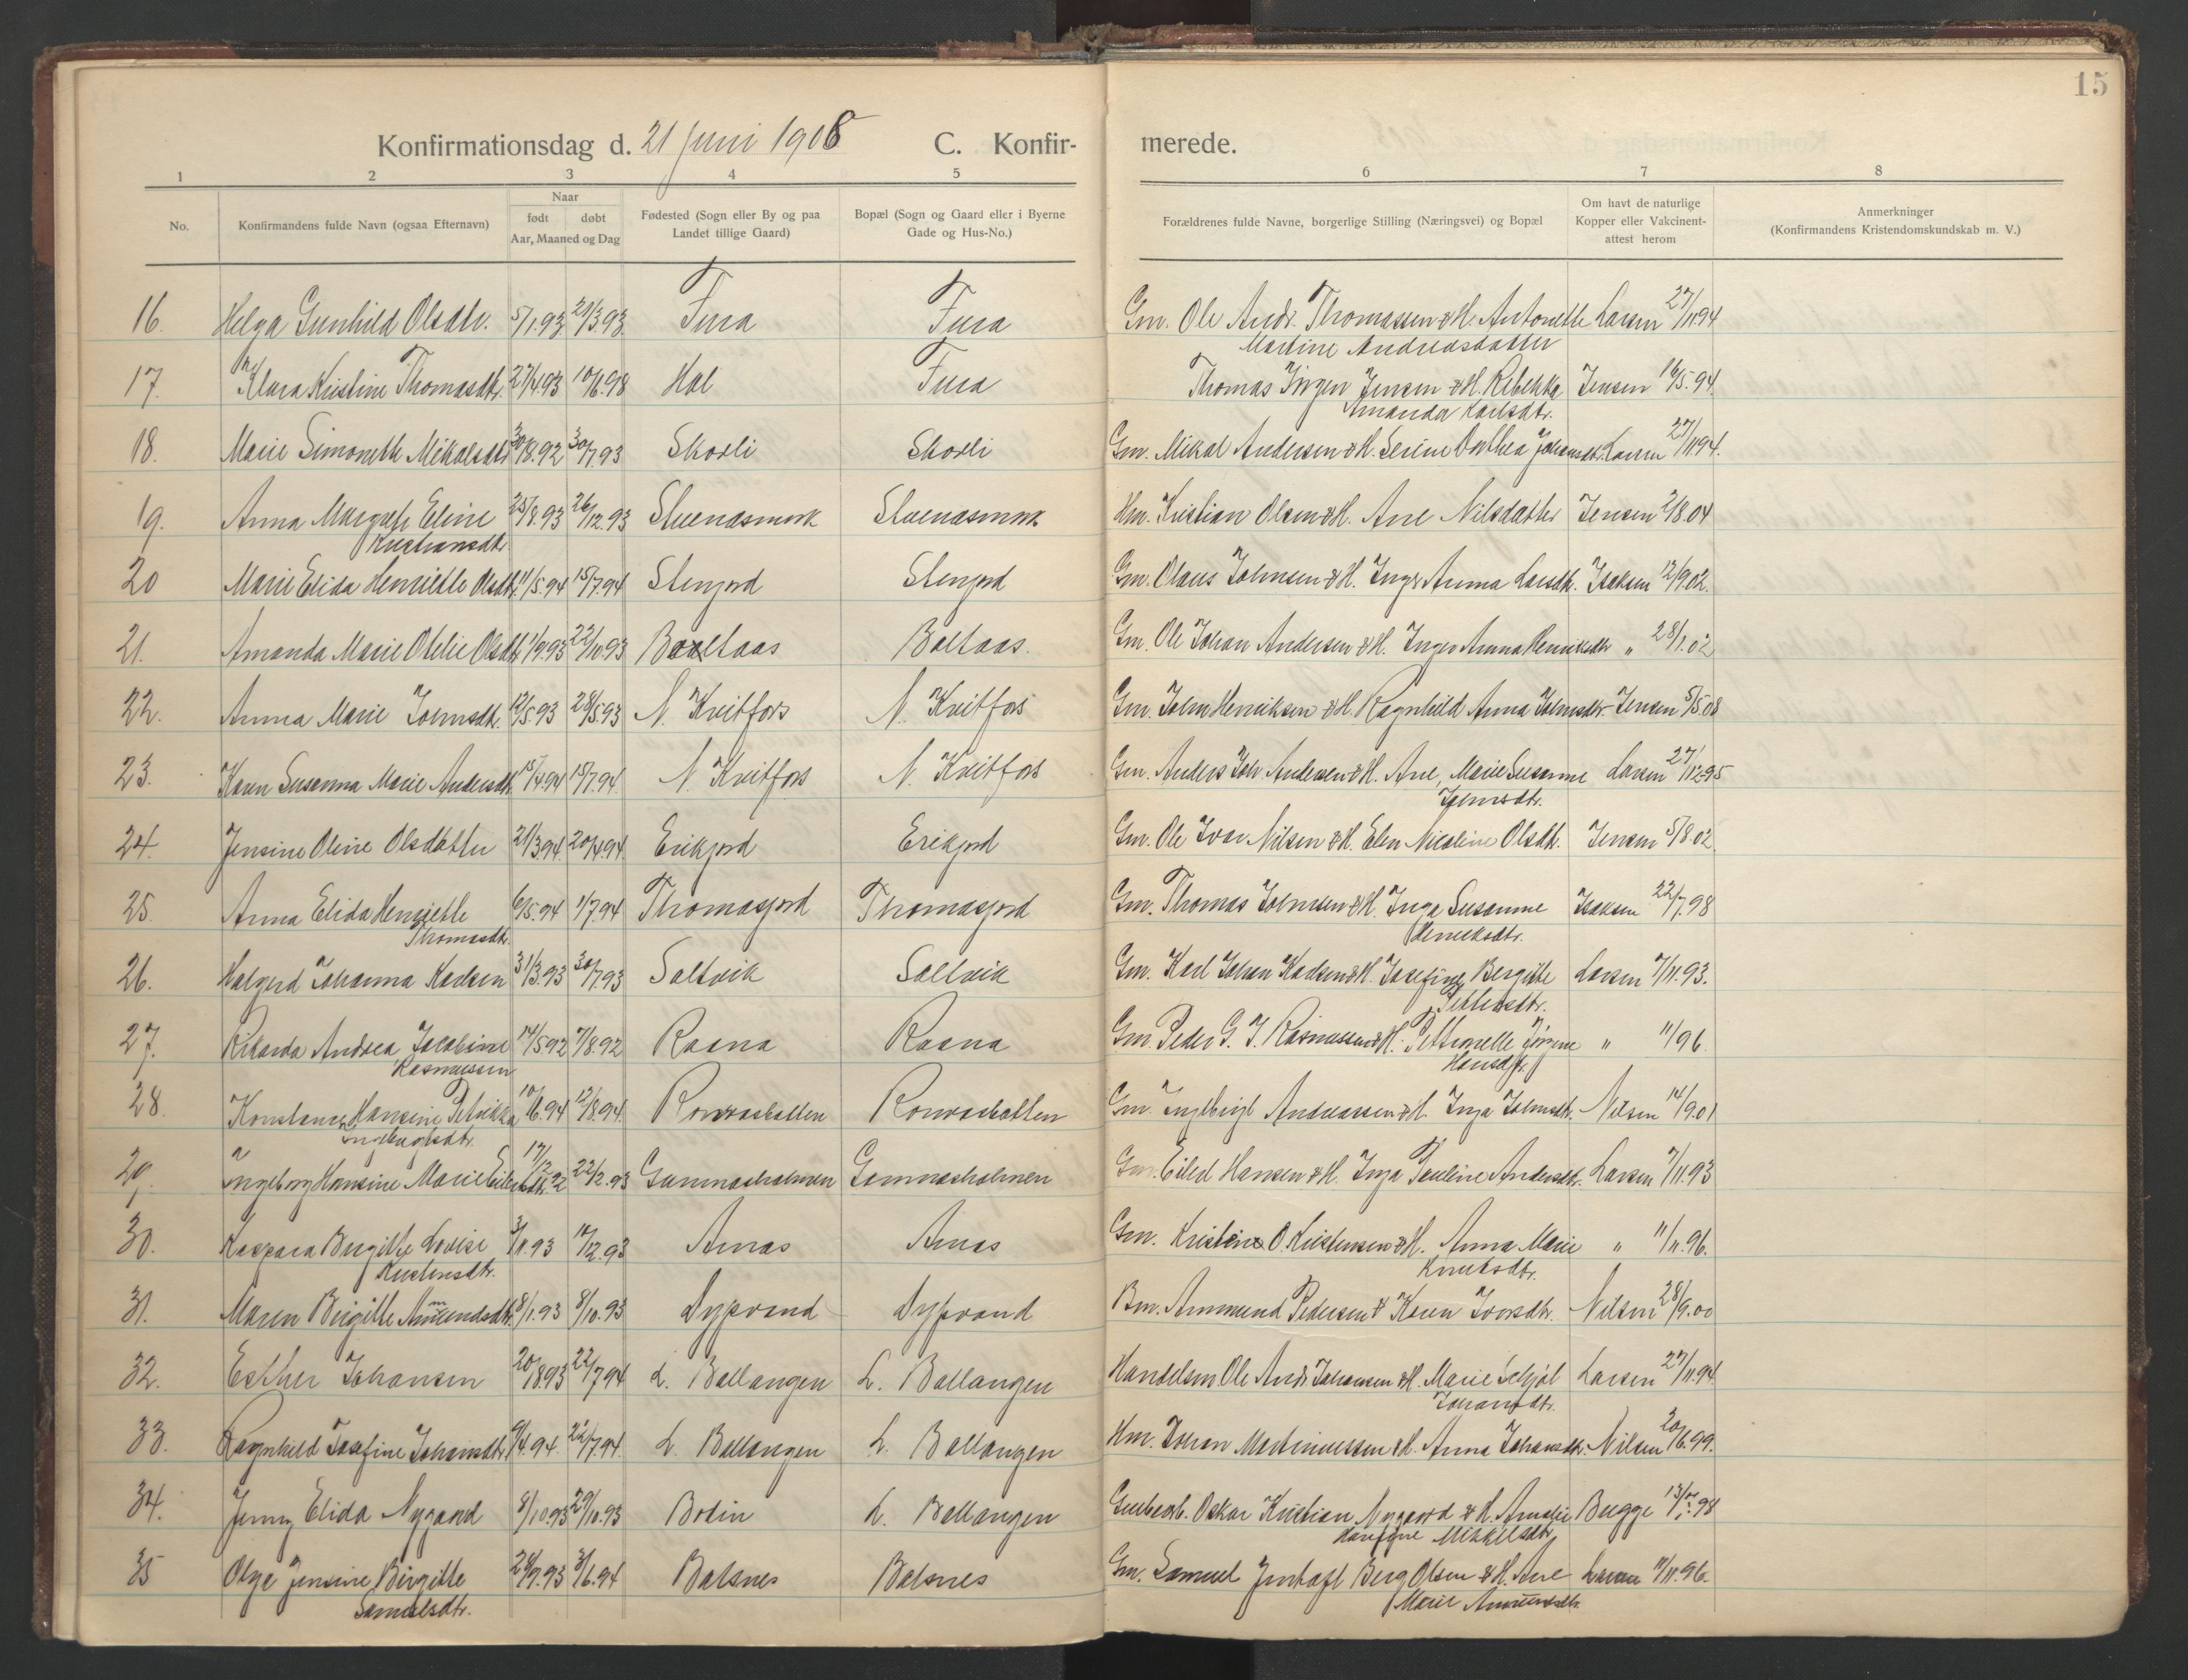 15
Konfirmationsdag d. 21 Juni 1908 C. Konfir- merede.
1 2 3 4 5 6 7 8
No.
Konfirmandens fulde Navn (ogsaa Efternavn)
Naar
født døbt
Aar, Maaned og Dag
Fødested (Sogn eller By og paa
Landet tillige Gaard)
Bopæl (Sogn og Gaard eller i Byerne
Gade og Hus-No.)
Forældrenes fulde Navne, borgerlige Stilling (Næringsvei) og Bopæl
Om havt de naturlige
Kopper eller Vakcinent-
attest herom
Anmerkninger
(Konfirmandens Kristendomskundskab m. V.)
16. Helga Gunhild Olsdtr. 5/1.93 21/3.93 Fura Fura Gm. Ole Andr. Thomassen & H. Antonette Larsen 27/11 94
Martine Andreasdatter
17. Klara Kristine Thomasdtr. 27/4.93 10/6.98 Hol Fura Thomas Jørgen Jensen & H. Rebekka Jensen 16/5.94
Amanda Karlsdtr.
18. Marie Simonette Mikalsdtr. 30/8.92 30/7.93 Skorli Skorli Gm. Mikal Andersen & H. Serine Dorthea Johansdtr. Larsen 27/11 94.
19. Anna Margrete Eline 25/8.93 26/12.93 Stuenasmark Stuenasmark Hm. Kristian Olsen & H. Ane Nilsdatter Jensen 2/8.04
Kristiansdtr.
20 Marie Elida Henriette Olsdtr. 11/5.94 15/7.94 Stenjord Stenjord Gm. Olaus Johnsen & H. Inger Anna Larsdtr. Isaksen 12/9.02.
21. Amanda Marie Otelie Olsdtr. 1/9.93 22/10.93 Boltaas Boltaas. Gm. Ole Johan Andersen & H. Inger Anna Henriksdtr " 28/1.02
22. Anna Marie Johnsdtr. 12/5.93 28/5.93 N. Kvitfors N. Kvitfors Gm. John Henriksen & H. Ragnhild Anna Johnsdtr. Jensen 5/5.08
23. Karen Susanna Marie Andersdtr. 15/4.94 15/7.94. N. Kvitfors N. Kvitfors Gm. Anders Joh. Andersen & H. Ane, Marie Susanne Larsen 27/12 95
Johnsdtr.
24. Jensine Oline Olsdatter 21/3.94. 20/4.94. Erikjord Erikjord Gm. Ole Ivar Nilsen & H. Elen Nicoline Olsdtr. Jensen 5/8.02.
25. Anna Elida Henriette 6/5.94 1/7.94 Thomasjord Thomasjord Gm. Thomas Johnsen & H. Inga Susanne Isaksen 22/7.98
Thomasdtr. Henriksdtr.
26. Halgerd Johanna Karlsen 31/3.93 30/7.93 Saltvik Saltvik Gm. Karl Johan Karlsen & H. Josefine Bergitte Larsen 7/11.93.
Pettersdtr.
27. Rikarda Andrea Jacobine 14/5.92 7/8.92 Raana Raana Gm. Peder G. J. Rasmussen & H. Petronelle Jørgine " 11/96.
Rasmussen Hansdtr.
28. Konstance Hansine Petrikka 10/6.94 12/8.94. Gm. Ingebrigt Andreassen & H. Inga Johnsdtr. Nilsen 14/9.01
Ingebrigtsdtr.
29. Ingeborg Hansine Marie Eilertsdtr. 17/12 92 22/2.93 Gammasholmen Gammasholmen Gm. Eilert Hansen & H. Inga Pauline Andersdtr. Larsen 7/11.93
30. Kaspara Bergitte Lovise 3/11.93 10/12.93 Arnas Arnas Gm. Kristine O. Kristensen & H. Anna Marie " 11/11.96.
Kristensdtr. Knutsdtr.
31. Maren Birgitte Ammundsdtr. 8/1.93 8/10.93 Dypvand Dypvand Bm. Ammund Pedersen & Karen Ivarsdtr. Nilsen 28/9.00
32. Esther Johansen 20/8.93 22/7.94 L. Ballangen L. Ballangen Handelsm. Ole Andr. Johansen & H. Marie Schjøl Larsen 27/11.94.
Johansdtr.
33. Ragnhild Josefine Johansdtr. 9/4.94. 22/7.94. L. Ballangen L. Ballangen Hm. Johan Martinussen & H. Anna Johansdtr. Nilsen 20/6.99.
34. Jenny Elida Nygaard 8/10.93 29/10.93 Bodin L. Ballangen Oskar Kristian Nygaard & H. Amalie Bugge
Mikkelsdtr.
35 Olga Jensine Birgitte 28/9.93 3/6.94 Balsnes Balsnes Gm. Samuel Jentoft Berg Olsen & H. Ane Larsen 11/11.96.
Samuelsdtr. Marie Ammundsdtr.